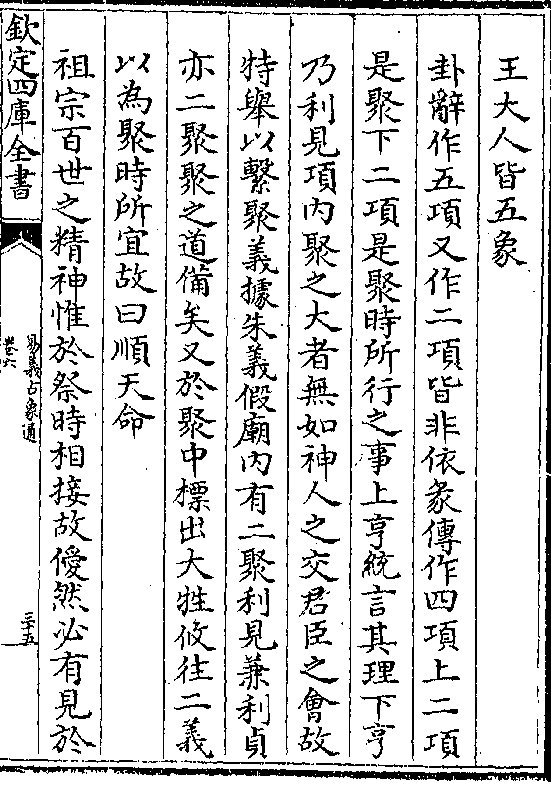 王大人皆五象
卦辭作五項又作二項皆非依彖傳作四項上二項
是聚下二項是聚時所行之事上亨統言其理下亨
乃利見項內聚之大者無如神人之交君臣之會故
特舉以繫聚義據朱義假廟內有二聚利見兼利貞
亦二聚聚之道備矣又於聚中標出大牲攸往二義
以為聚時所宜故曰順天命
祖宗百世之精神惟於祭時相接故僾然必有見於
欽定四庫全書
易義古象通
卷六
三十五